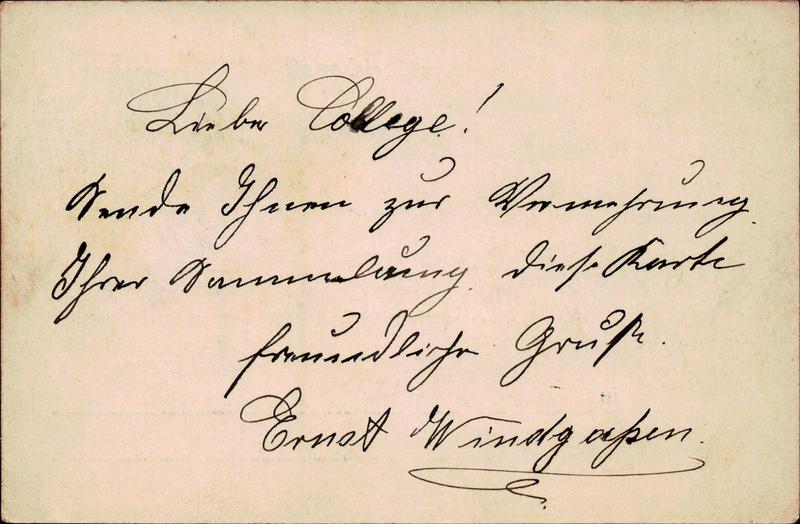 Lieber College!
Sende Ihnen zur Vermehrung
Ihrer Sammlung diese Karte
freundliche Grüße.
Ernst Windgaßen.